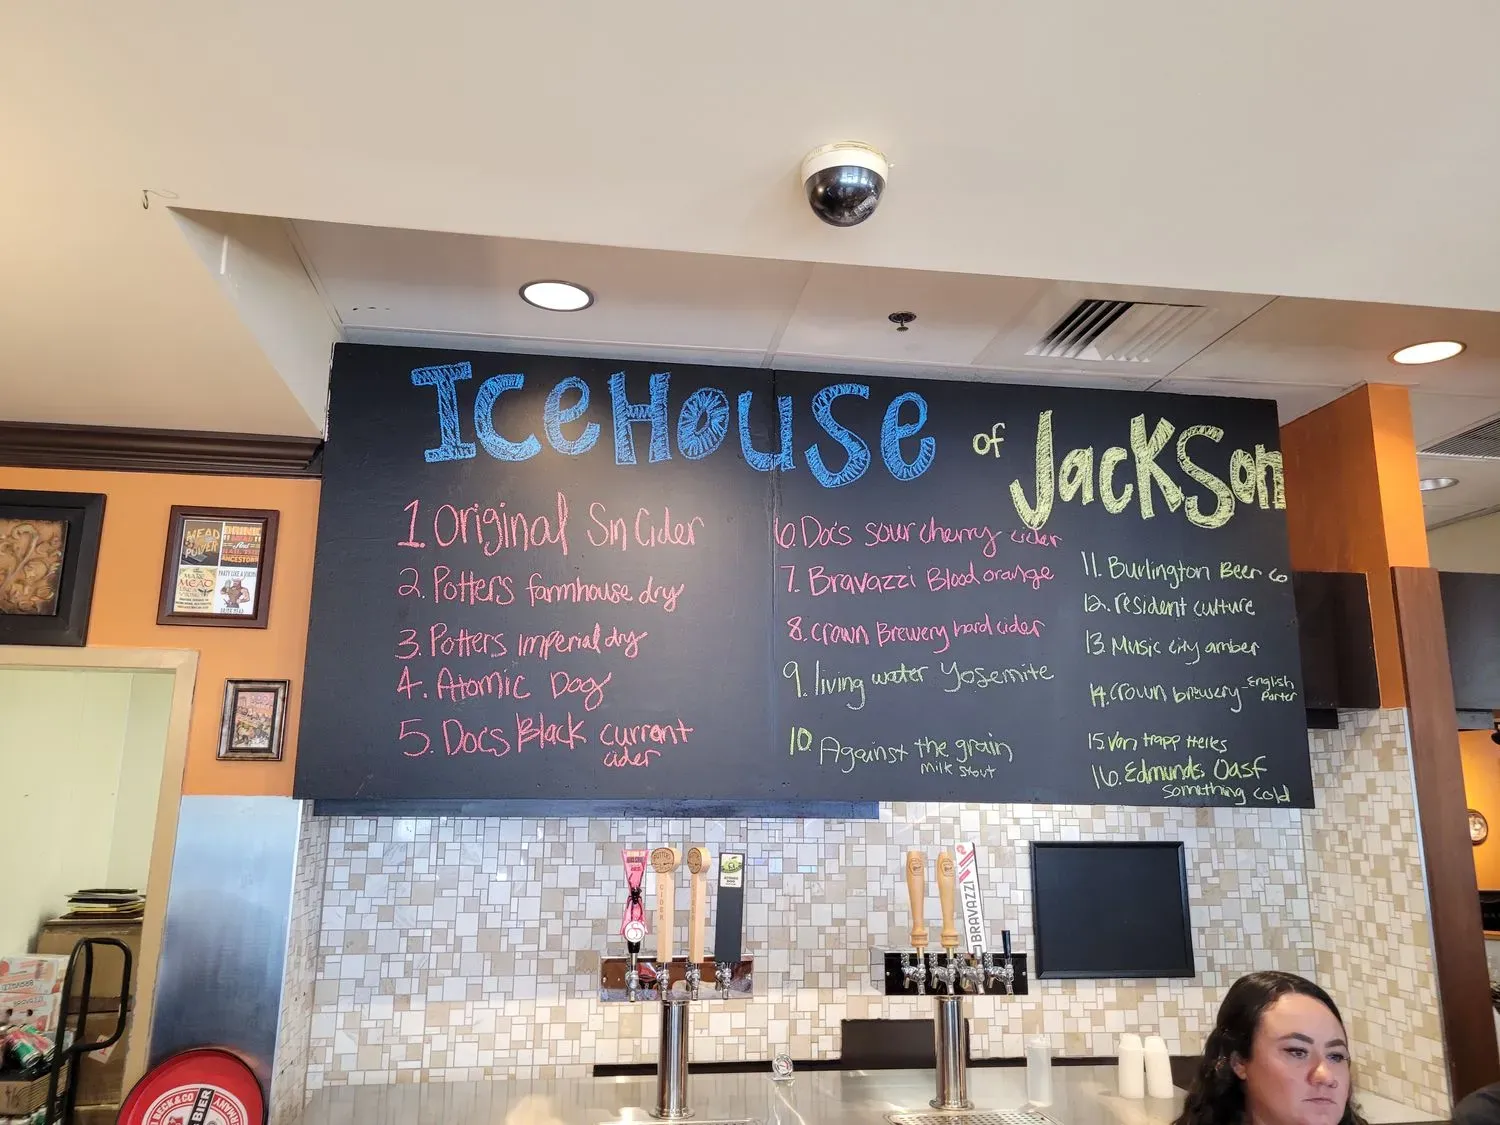 IceHouse of Jackson
1. Original Sin Cider
2. Potters farmhouse dry
3. Potters imperial dry
4. Atomic Dog
5. Docs Black currant
cider
6. Docs sour cherry cider
7. Bravazzi Blood orange
8. crown Brewery hard cider
9. living water Yosemite
10. Against the grain
Milk Stout
11. Burlington Beer co
12. resident culture
13. Music city amber
14. crown brewery - English
Porter
15. Von trapp Helles
16. Edmunds Oast
Something cold
MEAD
POWER
DRINK
MEAD
And
ANCESTORS
MAKE
MEAD
PARTY LIKE A VIKING
CIDER
BRAVAZZI
BECK & CO
BIER
GERMANY